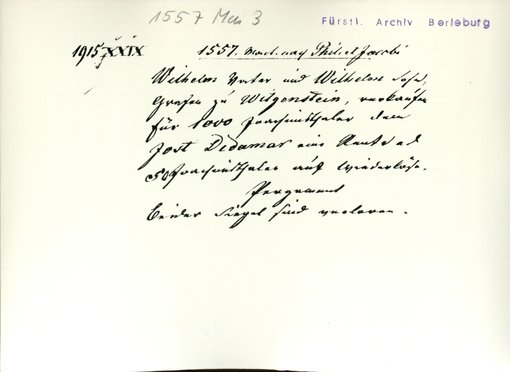 1557 Mai 3
Fürstl. Archiv Berleburg
1915 XXIX
1557. Mont. nach Philip et Jacobi
Wilhelm Vater und Wilhelm Sohn,
Grafen zu Witgenstein, verkaufen
für 1000 Joachimsthaler dem
Jost Dedamar eine Rente ad
50 Joachimsthaler auf Wiederlöse.
Pergament
Beider Siegel sind verloren.